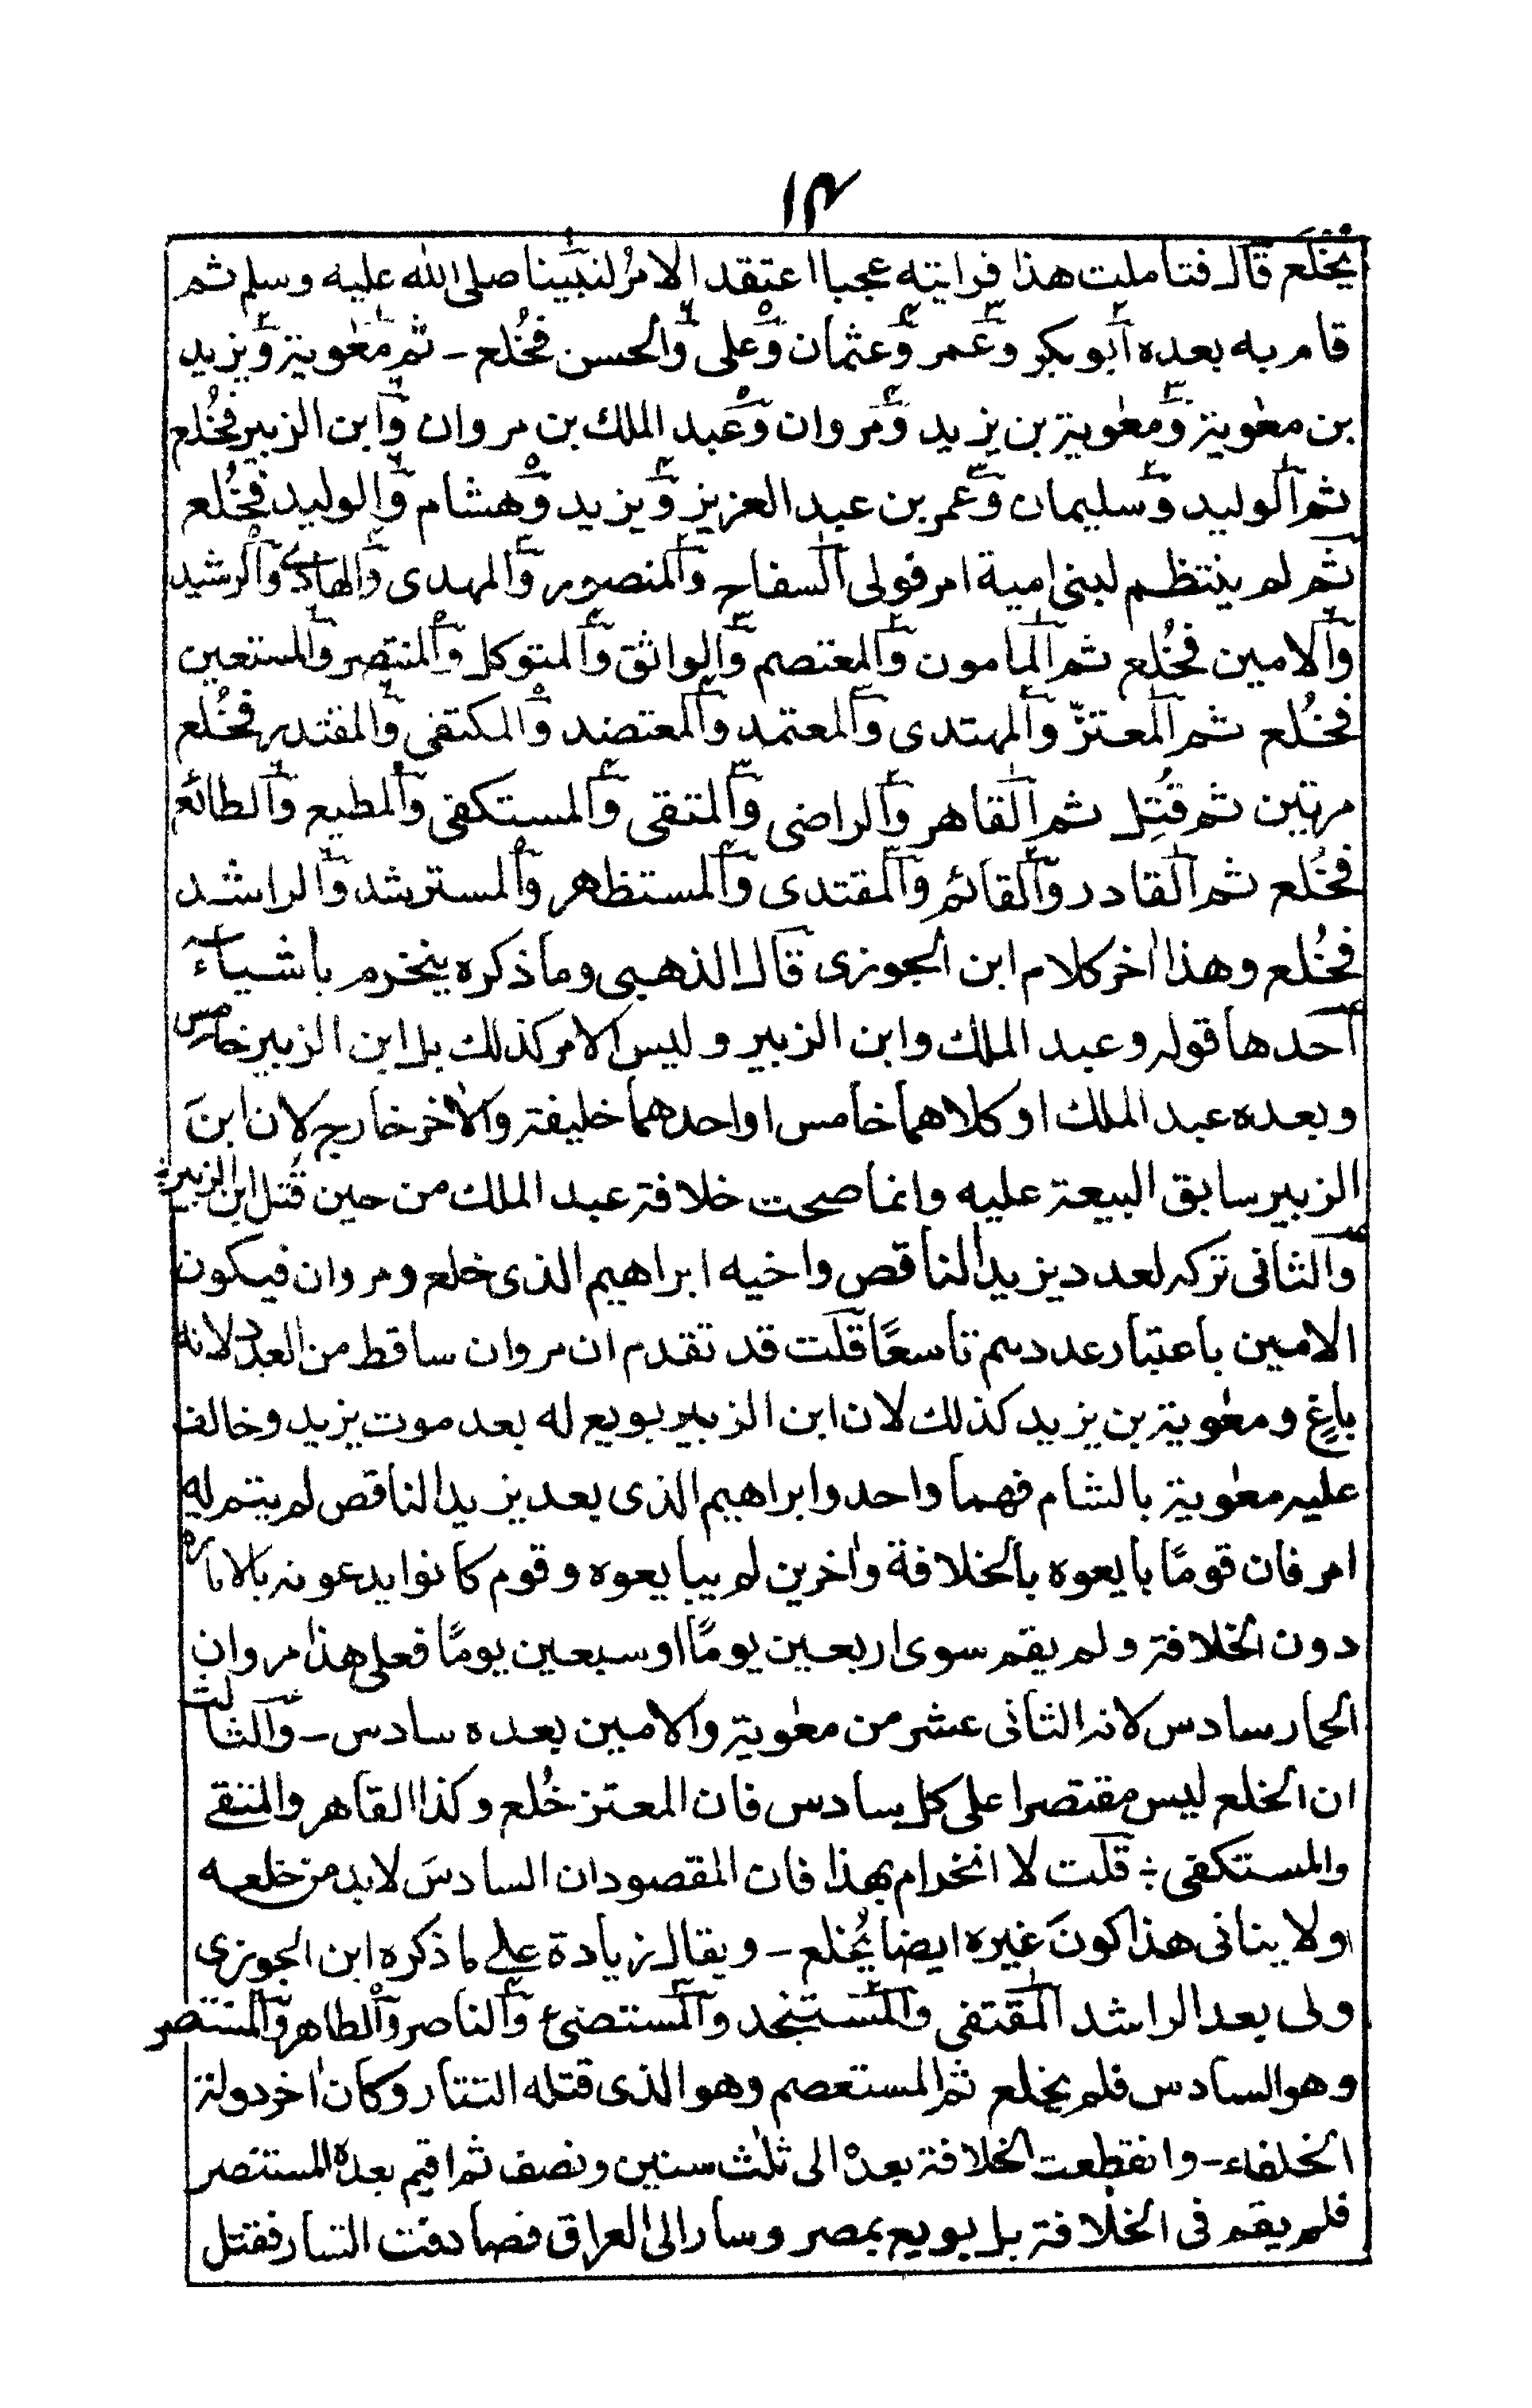 ١٣
يُخْلَع قال فتأملت هذا فرايته عجبا اعتقد الامرُ لنبيّنا صلى الله عليه وسلم ثم
قام به بعده ابوبكر وعمر وعثمان وعلى والحسن فخُلع - ثم معٰوية ويزيد
بن معٰوية ومعٰوية بن يزيد ومروان وعبد الملك بن مروان وابن الزبير فخُلع
ثم الوليد وسليمان وعمر بن عبد العزيز ويزيد وهشام والوليد فخُلع
ثم لم ينتظم لبنى امية امر فولى السفاح والمنصور والمهدى والهادى والرشيد
والامين فخُلع ثم المامون والمعتصم والواثق والمتوكل والمنتصر والمستعين
فخُلع ثم المعتزّ والمهتدى والمعتمد والمعتضد والمكتفى والمقتدر فخُلع
مرتين ثم قُتِل ثم القاهر والراضى والمتقى والمستكفى والمطيع والطائع
فخُلع ثم القادر والقائم والمقتدى والمستظهر والمسترشد والراشد
فخُلع وهذا اٰخر كلام ابن الجوزى قال الذهبى وما ذكره ينخرم باشياء
احدها قوله وعبد الملك وابن الزبير وليس الامر كذلك بل ابن الزبير خامس
وبعده عبد الملك او كلاهما خامس او احدهما خليفة والاٰخر خارج لان ابنَ
الزبير سابق البيعة عليه وانما صحت خلافة عبد الملك من حين قُتل ابن الزبير
والثانى تركه لعدد يزيد الناقص واخيه ابراهيم الذى خلع ومروان فيكون
الامين باعتبار عددهم تاسعًا قلت قد تقدم ان مروان ساقط من العدد لانه
باغٍ ومعٰوية بن يزيد كذلك لان ابن الزبير بويع له بعد موت يزيد وخالف
عليه معٰوية بالشام فهما واحد وابراهيم الذى بعد يزيد الناقص لم يتم له
امر فان قومًا بايعوه بالخلافة واٰخرين لم يبايعوه وقوم كانوا يدعونه بالامارة
دون الخلافة ولم يقم سوى اربعين يومًا او سبعين يومًا فعلى هذا مروان
الحمار سادس لانه الثانى عشر من معٰوية والامين بعده سادس - والثالث
ان الخلع ليس مقتصرا على كل سادس فان المعتز خُلع وكذا القاهر والمتقے
والمستكفى ؞ قلت لا انخرام بهذا فان المقصود ان السادسَ لابد من خلعه
ولا ينافى هذا كونَ غيره ايضا يُخلع - ويقال زيادة علے ما ذكره ابن الجوزى
ولى بعد الراشد المقتفى والمستنجد والمستضئ والناصر والظاهر والمستنصر
وهو السادس فلم يخلع ثم المستعصم وهو الذى قتله التتار وكان اٰخر دولة
الخلفاء - وانقطعت الخلافة بعدهٗ الى ثلٰث سنين ونصف ثم اقيم بعده المستنصر
فلم يقم فى الخلافة بل بويع بمصر وسار الى العراق فصادفت التتار فقتل